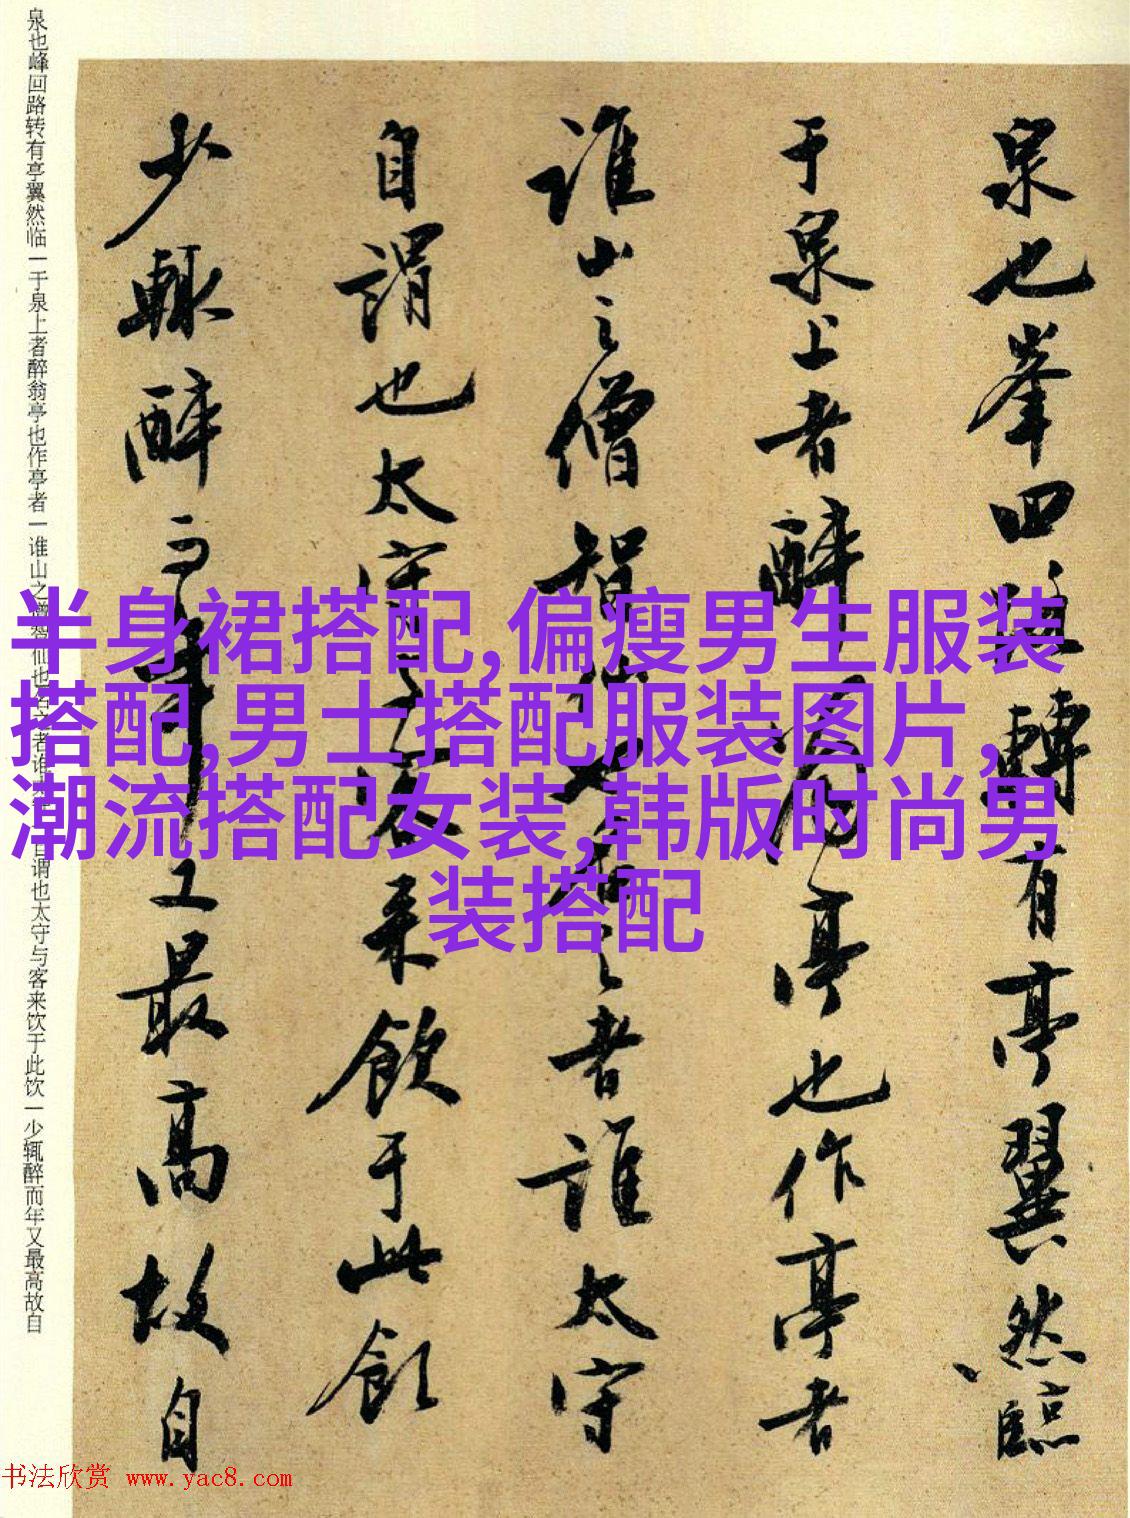 泉也峯回路轉有亭翼然臨
于泉上者醉翁亭也作亭者
誰山之僧智仙也名之者誰太守
自謂也太守与客来飲于此飲
少輒醉而年又最高故自
泉也峰回路转有亭翼然临一于泉上者醉翁亭也作亭者一谁山之僧智仙也名之者谁太守一自谓也太守与客来饮于此饮一少辄醉而年又最高故自
半身裙搭配,偏瘦男生服装
搭配,男士搭配服装图片,
潮流搭配女装,韩版时尚男
装搭配
书法欣赏 www.yac8.com